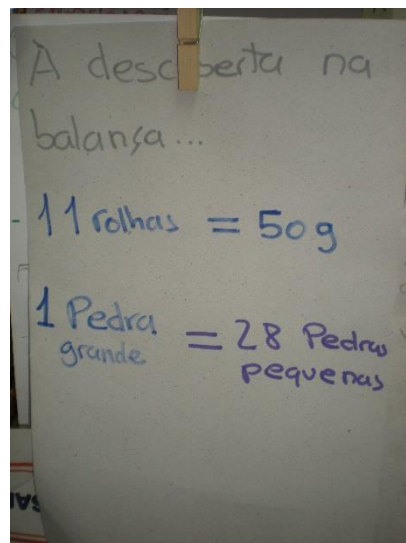 À descoberta na
balança...
11 rolhas = 50g
1 Pedra
grande
= 28 Pedras
pequenas